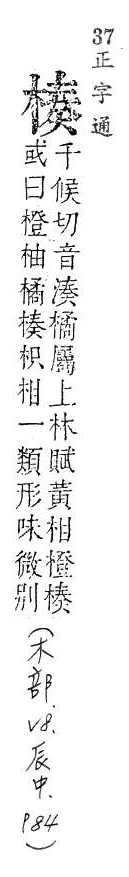 37 正字通
楱
千候切音湊橘屬上林賦黃柑橙楱
或曰橙柚橘楱枳柑一類形味微別
(木部 V8. 辰中. P84)